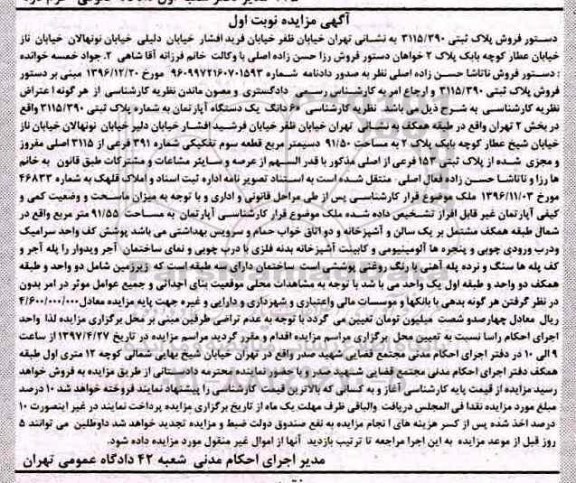 آگهی مزایده نوبت اول
دستور فروش پلاک ثبتی ۳۱۱۵/۳۹۰ به نشانی تهران خیابان ظفر خیابان فرید افشار خیابان دلیلی خیابان نونهالان خیابان ناز
خیابان عطار کوچه بابک پلاک ۲ خواهان دستور فروش رزا حسن زاده اصلی با وکالت خانم فرزانه آقا شاهی ۲. جواد خمسه خوانده
: دستور فروش ناتاشا حسن زاده اصلی نظر به صدور دادنامه شماره ۹۶۰۹۹۷۲۱۶۰۷۰۱۵۹۳ مورخ ۱۳۹۶/۱۲/۲۰ مبنی بر دستور
فروش پلاک ثبتی ۳۱۱۵/۳۹۰ و ارجاع امر به کارشناس رسمی دادگستری و مصون ماندن نظریه کارشناسی از هر گونه اعتراض
نظریه کارشناسی به شرح ذیل می باشد نظریه کارشناسی ۶۰ دانگ یک دستگاه آپارتمان به شماره پلاک ثبتی ۳۱۱۵/۳۹۰ واقع
در بخش ۲ تهران واقع در طبقه همکف و به نشانی تهران خیابان ظفر خیابان فرشید افشار خیابان دلیر خیابان نونهالان خیابان ناز
خیابان شیخ عطار کوچه بابک پلاک ۲ به مساحت ۹۱/۵۰ دسیمتر مربع قطعه سوم تفکیکی شماره ۳۹۱ فرعی از ۳۱۱۵ اصلی مفروز
و مجزی شده از پلاک ثبتی ۱۵۳ فرعی از اصلی مذکور با قدر السهم از عرصه و سایر مشاعات و مشترکات طبق قانون به خانم
ها رزا و ناتاشا حسن زاده فعال اصلی منتقل شده است به استناد تصویر نامه اداره ثبت اسناد و املاک قلهک به شماره ۴۶۸۳۳
مورخ ۱۳۹۶/۱۱/۰۳ ملک موضوع قرار کارشناسی پس از طی مراحل قانونی و اداری و با توجه به میزان مساحت و وضعیت کمی و
کیفی آپارتمان غیر قابل افراز تشخیص داده شده ملک موضوع قرار کارشناسی آپارتمان به مساحت ۹۱/۵۵ متر مربع واقع در
شمال طبقه همکف مشتمل بر یک سالن و آشپزخانه و دو اتاق خواب حمام و سرویس بهداشتی می باشد پوشش کف واحد سرامیک
ودرب ورودی چوبی و پنجره ها آلومینیومی و کابینت آشپزخانه بدنه فلزی با درب چوبی و نمای ساختمان آجر ویدوار را پله آجر و
کف پله ها سنگ و نرده پله آهنی با رنگ روغنی پوششی است ساختمان دارای سه طبقه است که زیرزمین شامل دو واحد و طبقه
همکف دو واحد و طبقه اول یک واحد می با شد با توجه به مشاهدات محلی موقعیت بنای احداثی و جمیع عوامل موثر در امر بدون
در نظر گرفتن هر گونه بدهی با بانکها و موسسات مالی واعتباری و شهرداری و دارایی و غیره جهت پایه مزایده معادل ۴/۶۰۰/۰۰۰/۰۰۰
ریال معادل چهارصدو شصت میلیون تومان تعیین می گردد با توجه به عدم تراضی طرفین مبنی بر محل برگزاری مزایده لذا واحد
اجرای احکام راسا نسبت به تعیین محل برگزاری مراسم مزایده اقدام و مقرر گردید مراسم مزایده در تاریخ ۱۳۹۷/۴/۲۷ از ساعت
۹ الی ۱۰ در دفتر اجرای احکام مدنی مجتمع قضایی شهید صدر واقع در تهران خیابان شیخ بهایی شمالی کوچه ۱۲ متری اول طبقه
همکف دفتر اجرای احکام مدنی مجتمع قضایی شنهید صدر و با حضور نماینده محترمه دادستانی از طریق مزایده به فروش خواهد
رسید مزایده از قیمت پایه کارشناسی آغاز و به کسانی که بالاترین قیمت کارشناسی را پیشنهاد نمایند فروخته خواهد شد ۱۰ درصد
مبلغ مورد مزایده نقدا فی المجلس دریافت والباقی ظرف مهلت یک ماه از تاریخ برگزاری مزایده پرداخت نمایند در غیر اینصورت ۱۰
درصد اخذ شده پس از کسر هزینه های ا نجام مزایده به نفع صندوق دولت ضبط و مزایده تجدید خواهد شد داوطلبین می توانند ۵
روز قبل از موعد مزایده به این اجرا مراجعه تا ترتیب بازدید آنها از اموال غیر منقول مورد مزایده داده شود.
مدیر اجرای احکام مدنی شعبه ۴۲ دادگاه عمومی تهران